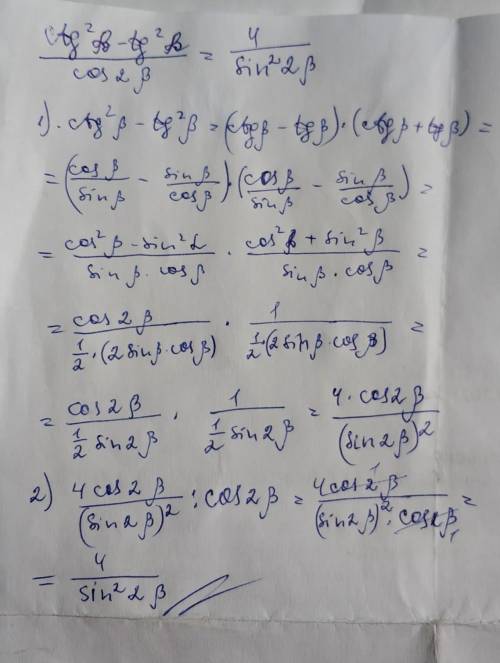 (ctg²β - tg²β) / cos2β = 4 / sin²2β
1). ctg²β - tg²β = (ctgβ - tgβ)·(ctgβ + tgβ) =
= (cosβ/sinβ - sinβ/cosβ)·(cosβ/sinβ - sinβ/cosβ) =
= (cos²β - sin²L)/(sinβ·cosβ) · (cos²β + sin²β)/(sinβ·cosβ) =
= cos2β/(1/2·(2sinβ·cosβ)) · 1/(1/2·(2sinβ·cosβ)) =
= cos2β/(1/2 sin2β) · 1/(1/2 sin2β) = 4·cos2β/(sin2β)²
2) 4cos2β/(sin2β)² : cos2β = 4cos2β/((sin2β)²·cos2β) =
= 4/sin²2β